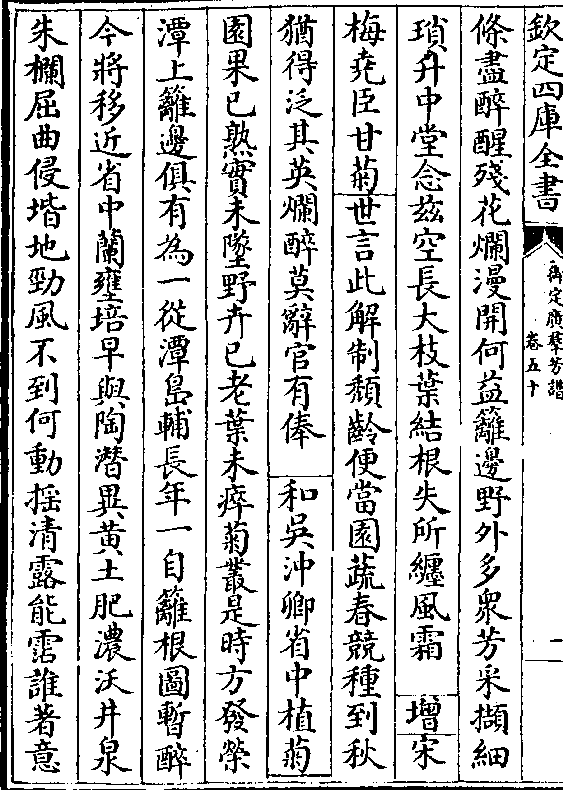 欽定四庫全書
御定廣羣芳譜
卷五十
一
條盡醉醒殘花爛漫開何益籬邊野外多衆芳采擷細
瑣升中堂念兹空長大枝葉結根失所纏風霜 增宋
梅堯臣甘菊世言此解制頽齡便當園蔬春競種到秋
猶得泛其英爛醉莫辭官有俸 和吳沖卿省中植菊
園果已熟實未墜野卉已老葉未瘁菊叢是時方發榮
潭上籬邊俱有為一從潭島輔長年一自籬根圖暫醉
今將移近省中蘭壅培早與陶潛異黄土肥濃沃井泉
朱欄屈曲侵堦地勁風不到何動揺清露能霑誰著意